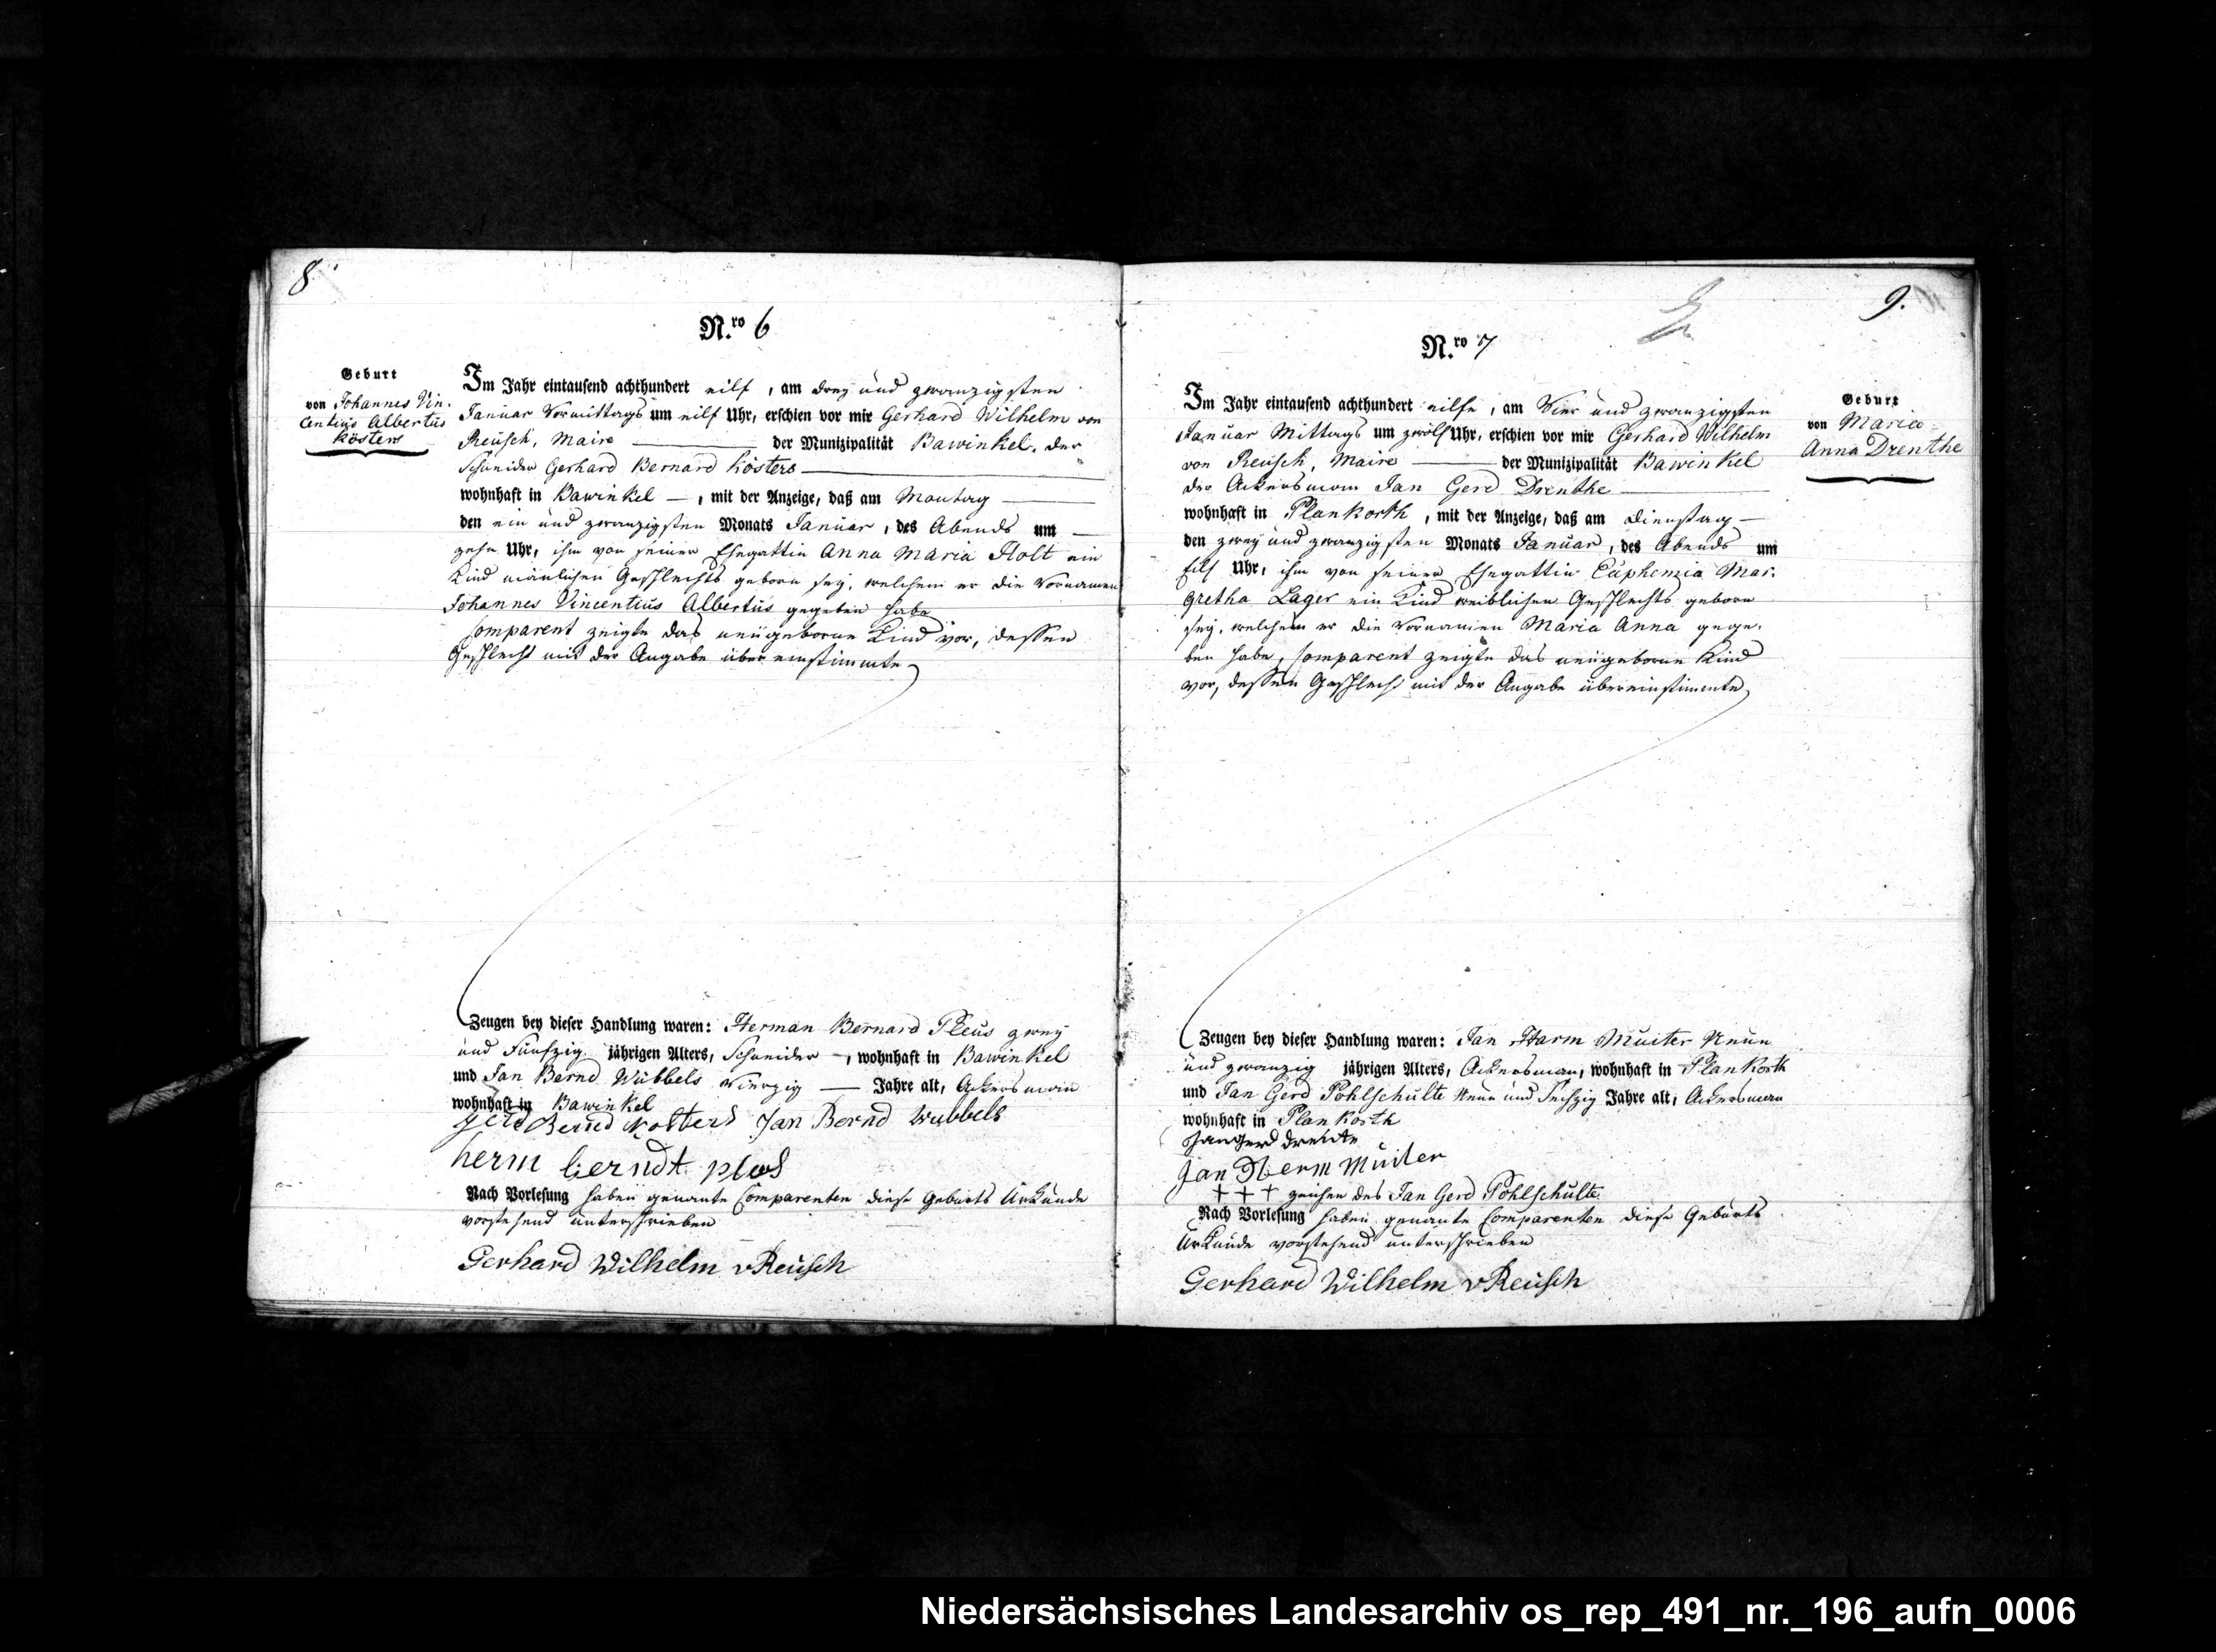 8.
N.ro 6
Geburt
von Johannes Vin-
centius Albertus
Kösters
Im Jahr eintausend achthundert eilf, am drey und zwanzigsten
Januar Vormittags um eilf Uhr, erschien vor mir Gerhard Wilhelm von
Reusch, Maire der Munizipalität Bawinkel, der
Schneider Gerhard Bernard Kösters
wohnhaft in Bawinkel, mit der Anzeige, daß am Montag
den ein und zwanzigsten Monats Januar, des Abends um
zehn Uhr, ihm von seiner Ehegattin Anna Maria Holt ein
Kind mänlichen Geschlechts geborn sey, welchem er die Vornamen
Johannes Vincentius Albertus gegeben habe
Comparent zeigte das neugeborne Kind vor, dessen
Geschlecht mit der Angabe übereinstimmte
Zeugen bey dieser Handlung waren: Herman Bernard Pleus zwey
und Funfzig jährigen Alters, Schneider, wohnhaft in Bawinkel
und Jan Bernd Wübbels Vierzig Jahre alt, Ackersmann
wohnhaft in Bawinkel
Gerd Bernd Kosters Jan Bernd Wubbels
herm berndt plos
Nach Vorlesung haben genante Comparenten diese Geburts Urkunde
vorstehend unterschrieben
Gerhard Wilhelm vReusch
9.
N.ro 7
Geburt
von Maria
Anna Drenthe
Im Jahr eintausend achthundert eilfe, am Vier und zwanzigsten
Januar Mittags um zwölf Uhr, erschien vor mir Gerhard Wilhelm
von Reusch, Maire der Munizipalität Bawinkel
der Ackersmann Jan Gerd Drenthe
wohnhaft in Plankorth, mit der Anzeige, daß am Dienstag
den zwey und zwanzigsten Monats Januar, des Abends um
Eilf Uhr, ihm von seiner Ehegattin Euphemia Mar-
gretha Lager ein Kind weiblichen Geschlechts geborn
sey, welchem er die Vornamen Maria Anna gege-
ben habe, Comparent zeigte das neugeborne Kind
vor, dessen Geschlecht mit der Angabe übereinstimmte
Zeugen bey dieser Handlung waren: Jan Harm Muiter Neun
und zwanzig jährigen Alters, Ackersman, wohnhaft in Plankorth
und Jan Gerd Pohlschulte Neun und Sechzig Jahre alt, Ackersman
wohnhaft in Plankorth
Jan Gerd Drente
Jan Herm Muiter
+ + + zeichen des Jan Gerd Pohlschulte
Nach Vorlesung haben genante Comparenten diese Geburts
Urkunde vorstehend unterschrieben
Gerhard Wilhelm vReusch
Niedersächsisches Landesarchiv os_rep_491_nr._196_aufn_0006